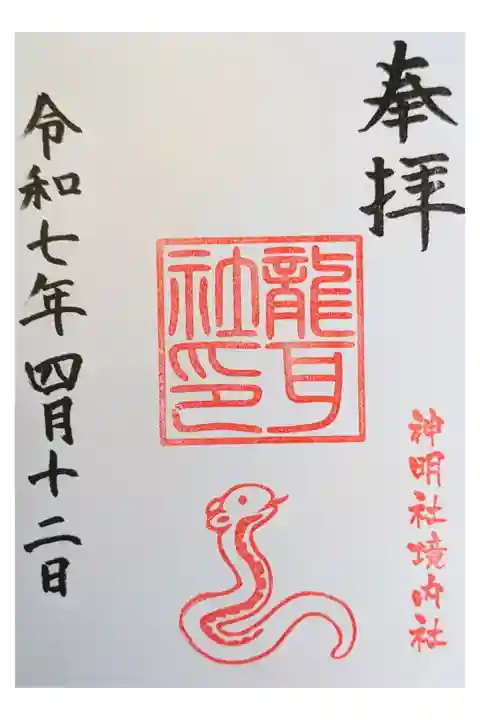 奉拝
神明社境内社
龍耳
社印
令和七年四月十二日